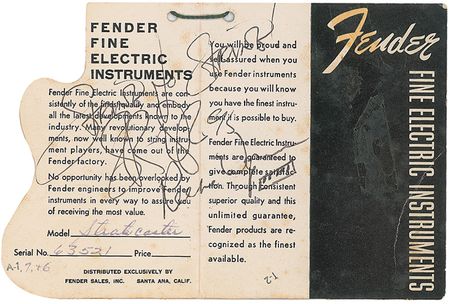 FENDER
FINE
ELECTRIC
INSTRUMENTS
Fender Fine Electric Instruments are con-
sistently of the finest quality and embody
all the latest developments known to the
industry. Many revolutionary develop-
ments, now well known to string instru-
ment players, have come out of the
Fender factory.
No opportunity has been overlooked by
Fender engineers to improve Fender
instruments in every way to assure you
of receiving the most value.
Model Stratocaster
Serial No. 63521 Price
DISTRIBUTED EXCLUSIVELY BY
FENDER SALES, INC. SANTA ANA, CALIF.
You will be proud and
self-assured when you
use Fender instruments
because you will know
you have the finest instru-
ment it is possible to buy.
Fender Fine Electric Instru-
ments are guaranteed to
give complete satisfac-
tion. Through consistent
superior quality and this
unlimited guarantee,
Fender products are re-
cognized as the finest
available.
Fender
FINE ELECTRIC INSTRUMENTS